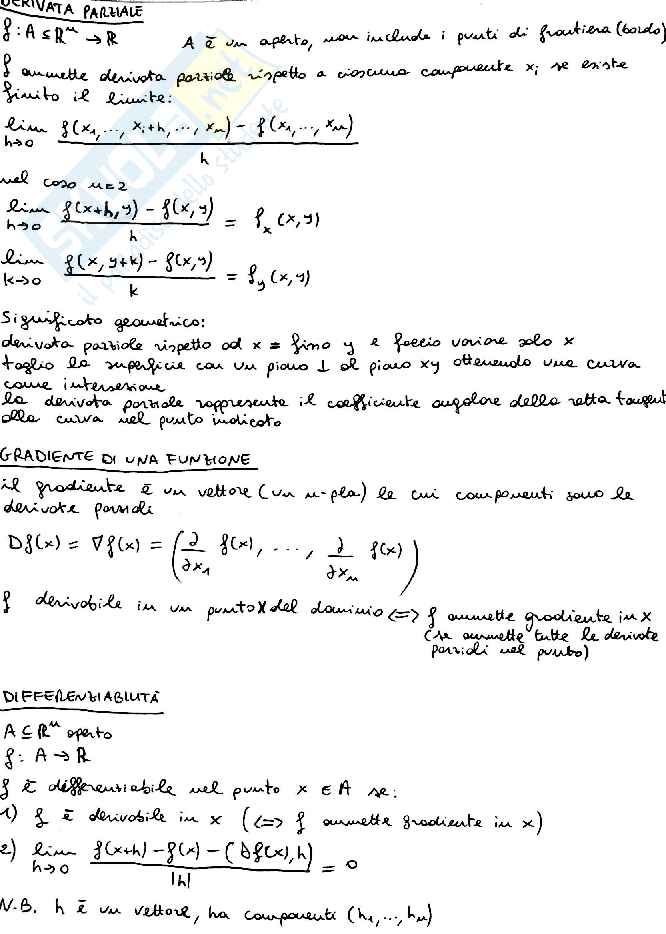 DERIVATA PARZIALE
f: A ⊆ ℝⁿ → ℝ A è un aperto, non include i punti di frontiera (bordo)
f ammette derivata parziale rispetto a ciascuna componente xᵢ se esiste
finito il limite:
lim h→0 (f(x₁, ..., xᵢ+h, ..., xₙ) - f(x₁, ..., xₙ)) / h
nel caso n=2
lim h→0 (f(x+h, y) - f(x, y)) / h = fₓ(x, y)
lim k→0 (f(x, y+k) - f(x, y)) / k = f_y(x, y)
Significato geometrico:
derivata parziale rispetto ad x = fisso y e faccio variare solo x
taglio la superficie con un piano ⊥ al piano xy ottenendo una curva
come intersezione
la derivata parziale rappresenta il coefficiente angolare della retta tangent
alla curva nel punto indicato
GRADIENTE DI UNA FUNZIONE
il gradiente è un vettore (un n-pla) le cui componenti sono le
derivate parziali
Df(x) = ∇f(x) = (∂/∂x₁ f(x), ..., ∂/∂xₙ f(x))
f derivabile in un punto x del dominio <=> f ammette gradiente in x
(se ammette tutte le derivate
parziali nel punto)
DIFFERENZIABILITÀ
A ⊆ ℝⁿ aperto
f: A → ℝ
f è differenziabile nel punto x ∈ A se:
1) f è derivabile in x (<=> f ammette gradiente in x)
2) lim h→0 (f(x+h) - f(x) - (Df(x), h)) / |h| = 0
N.B. h è un vettore, ha componenti (h₁, ..., hₙ)
STUDENTI.net
il paradiso dello studente